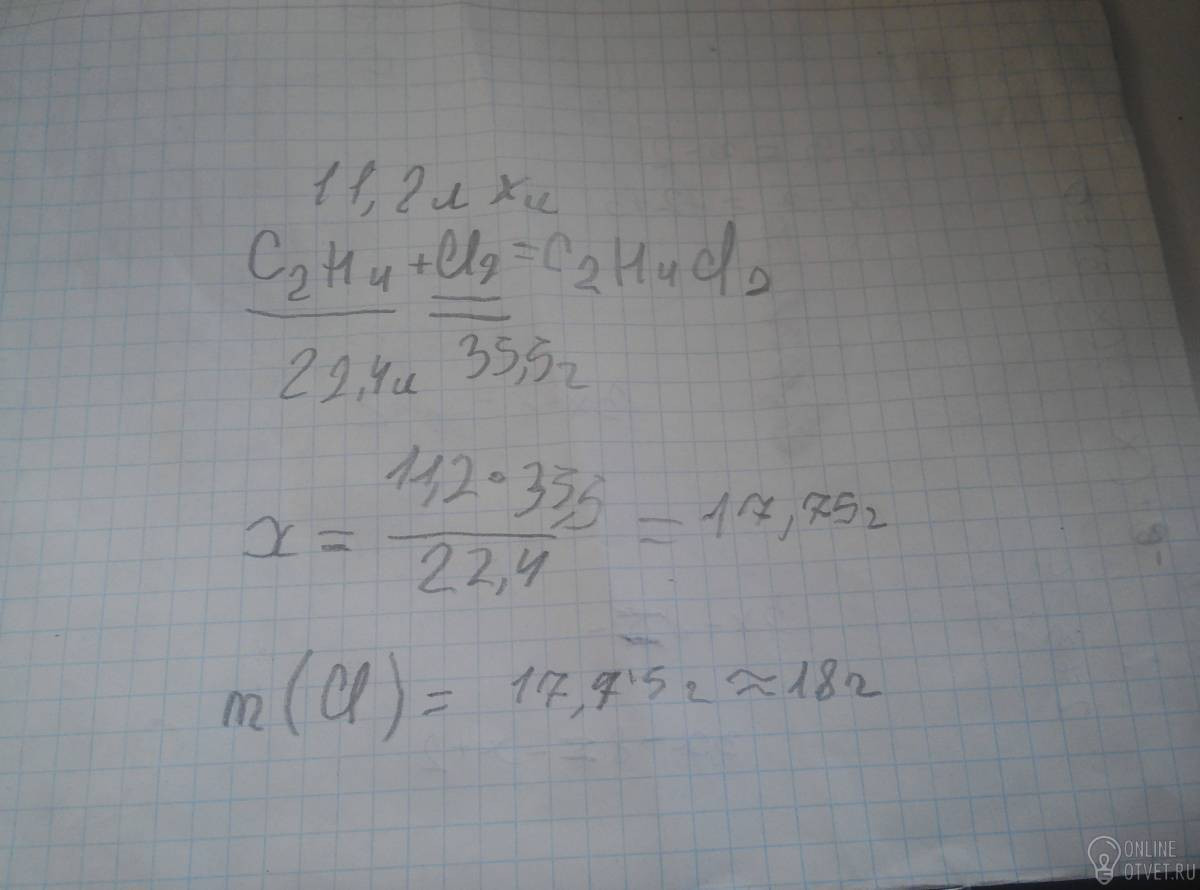 11,2л хл
C₂H₄ + Cl₂ = C₂H₄Cl₂
22,4л 35,5г
x = 11,2 • 35,5 / 22,4 = 17,75г
m(Cl) = 17,75г ≈ 18г
ONLINE
OTVET.RU